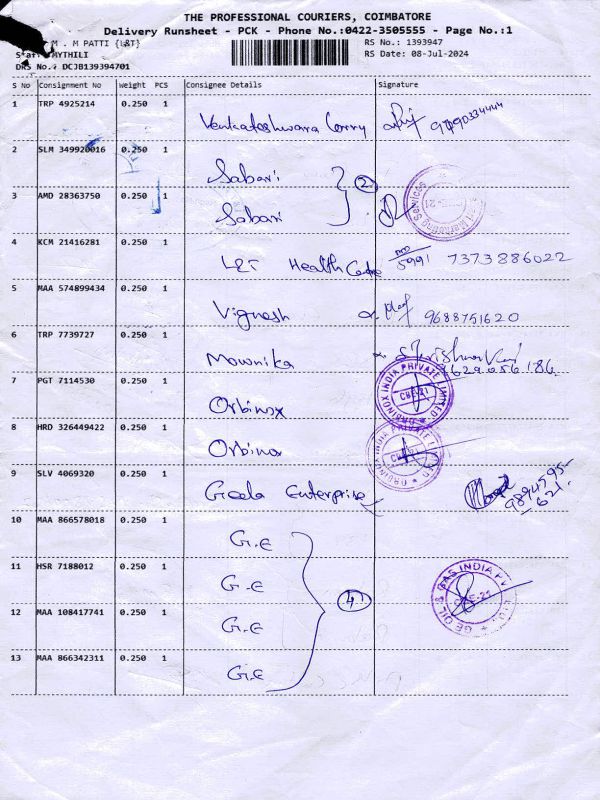 THE PROFESSIONAL COURIERS, COIMBATORE
Delivery Runsheet - PCK - Phone No.:0422-3505555 - Page No.:1
M . M PATTI {L&T}
RS No.: 1393947
MYTHILI
RS Date: 08-Jul-2024
DRS No.: DCJB139394701
S No Consignment No Weight PCS Consignee Details Signature
1 TRP 4925214 0.250 1 Venkateshwara Lorry
2 SLM 349920016 0.250 1 Sabari 2
3 AMD 28363750 0.250 1 Sabari
4 KCM 21416281 0.250 1 L&T Health Centre 5991 7373886022
5 MAA 574899434 0.250 1 Vignesh 9688751620
6 TRP 7739727 0.250 1 Mownika 9629056186
7 PGT 7114530 0.250 1 Orbinox ORBINOX INDIA PRIVATE LIMITED CBE-21
8 HRD 326449422 0.250 1 Orbinox
9 SLV 4069320 0.250 1 Geela Enterprise 9894595621
10 MAA 866578018 0.250 1 G.E
11 HSR 7188012 0.250 1 G.E 4 GE OIL & GAS INDIA PVT. LTD. CBE-21
12 MAA 108417741 0.250 1 G.E
13 MAA 866342311 0.250 1 G.E